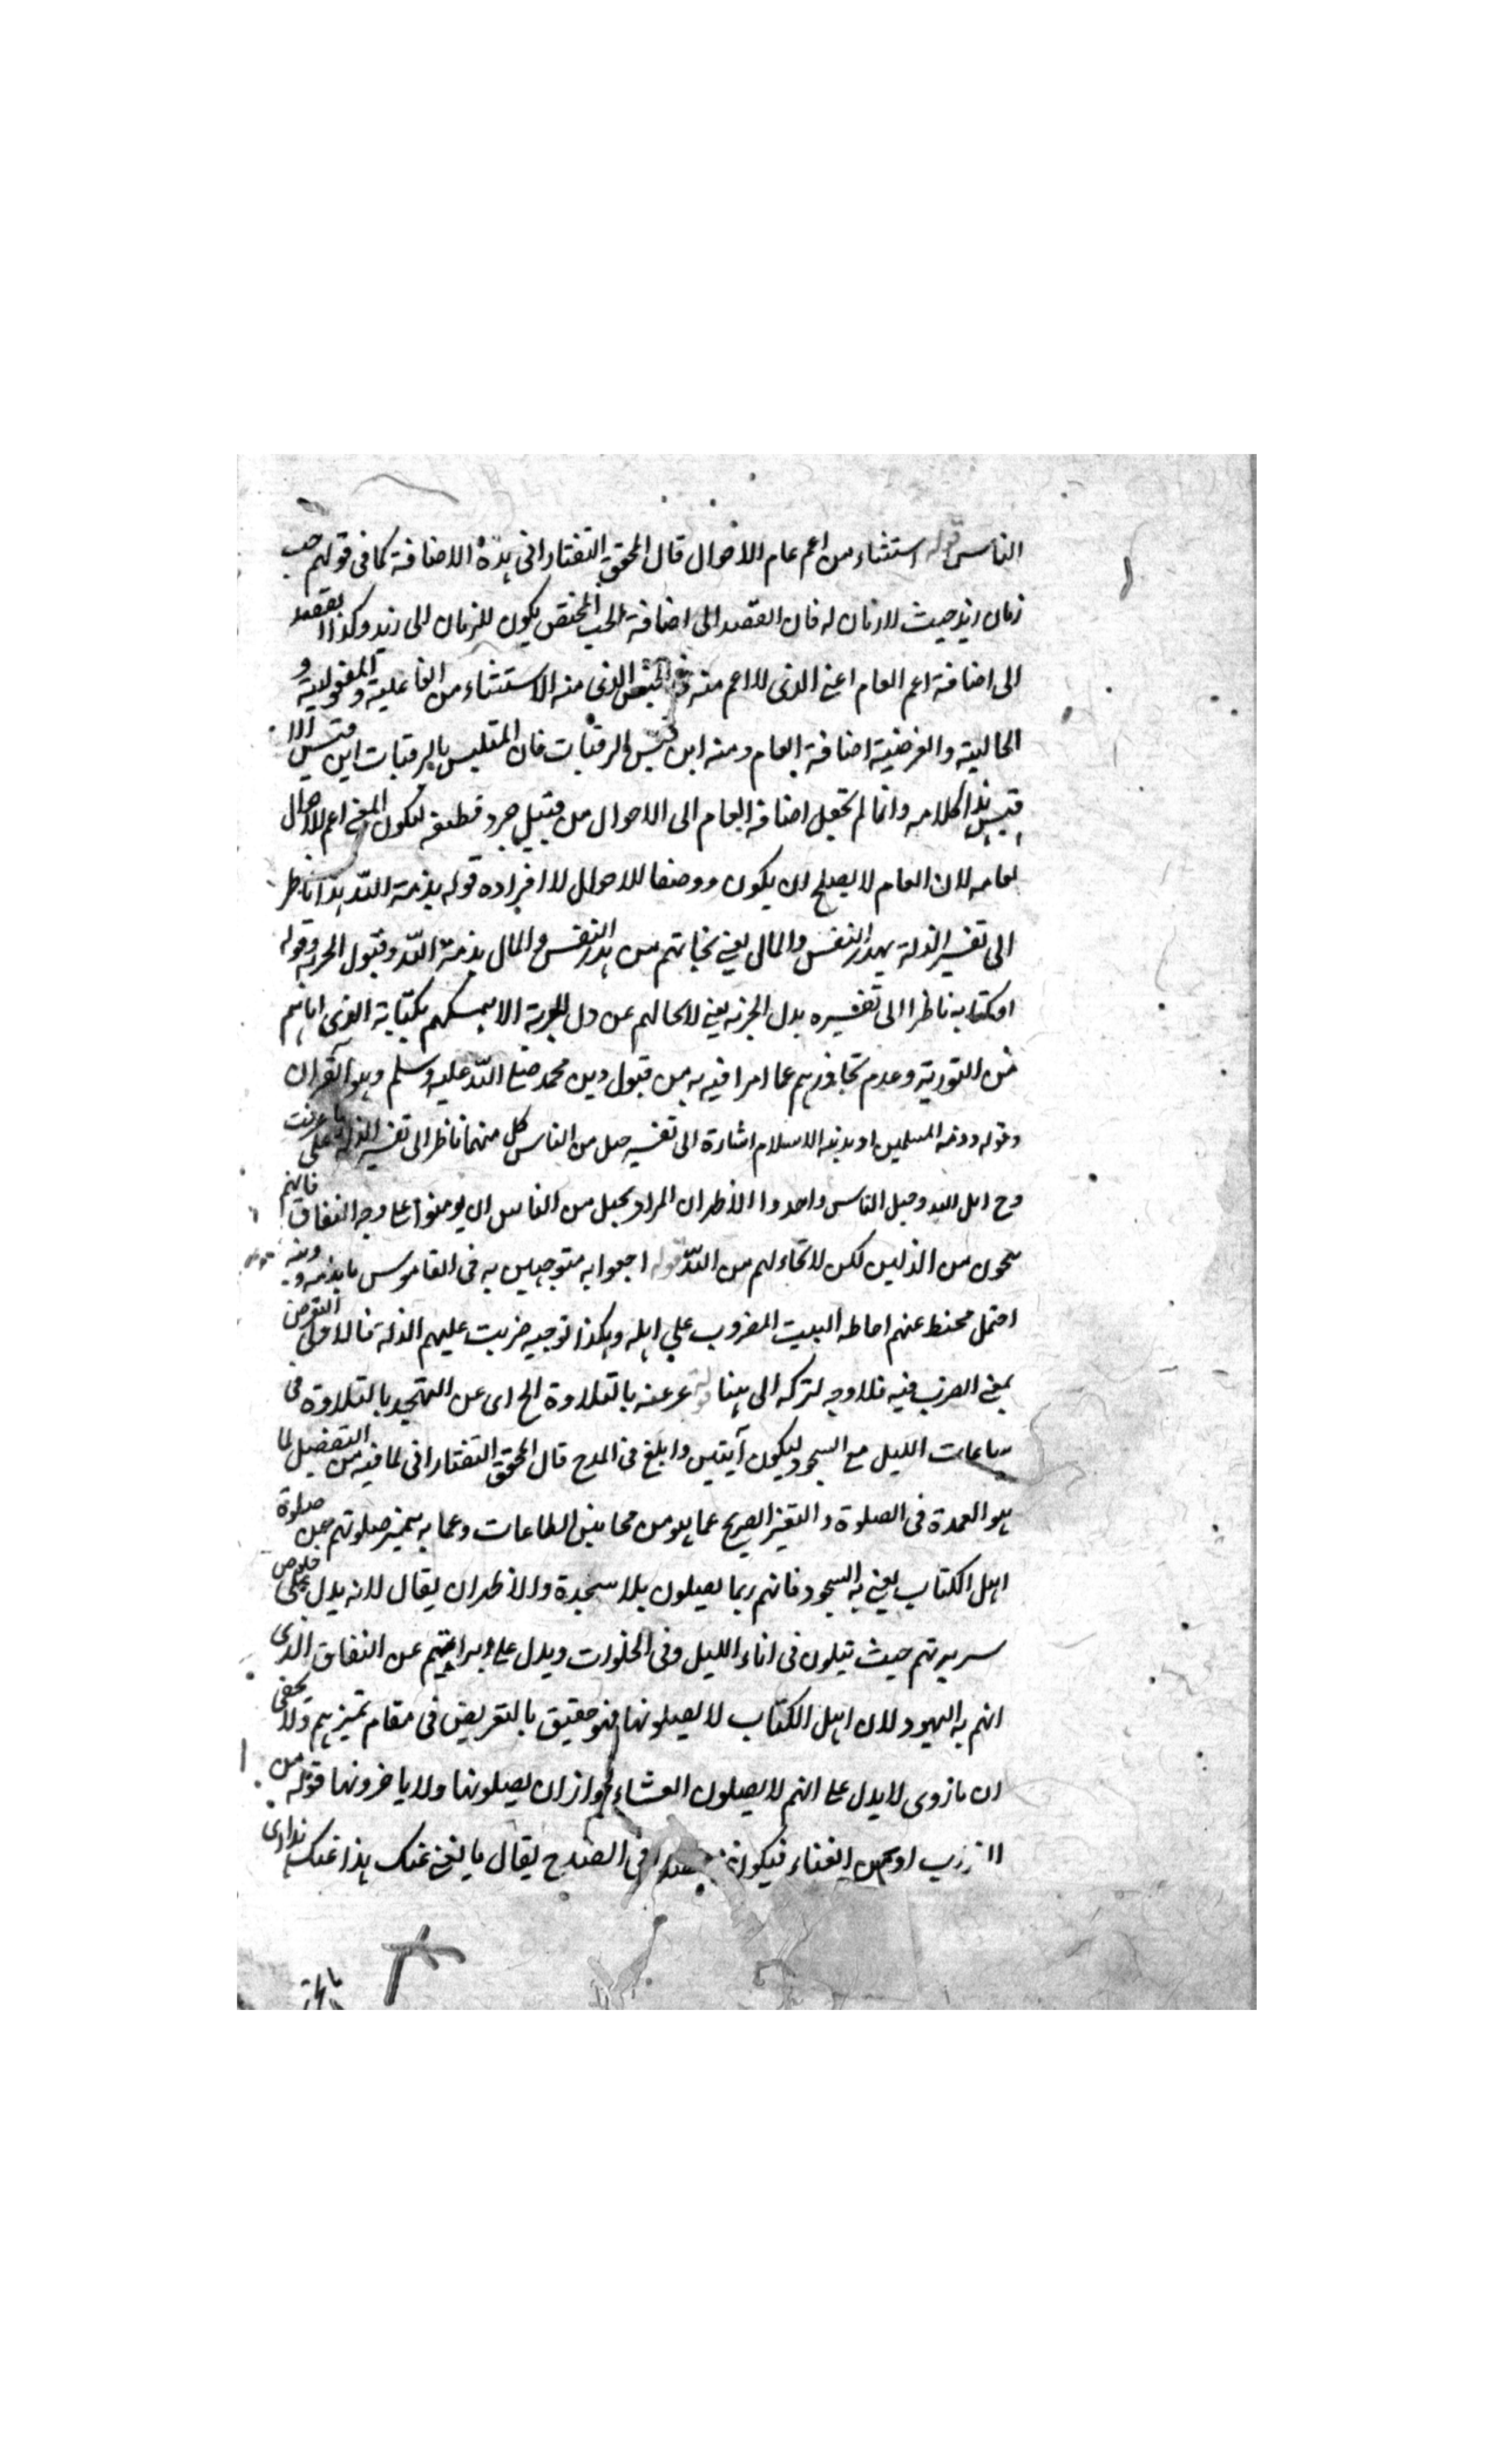 الناس قوله استثناء من اعم عام الاحوال قال المحقق التفتازانى هذه الاضافة كما فى قولهم حب
زمان زيد حيث لا زمان له فان القصد الى اضافة الحب المختص بكون للزمان الى زيد وكذا القصد
الى اضافة اعم العام اعنى الذى لا اعم منه فى الجنس الذى منه الاستثناء من الفاعلية والمفعولية و
الحالية والغرضية اضافة العام ومنه ابن قيس الرقيات فان المتلبس بالرقيات ابن قيس لا
قيس هذا كلامه وانما لم تجعل اضافة العام الى الاحوال من قبيل جرد قطيفة ليكون المعنى اعم الاحوال
لعامه لان العام لا يصلح ان يكون وصفا للاحوال لافراده قوله بذمة الله هذا ناظر
الى تفسير الذلة بهدر النفس والمال يعنى نجاتهم من هدر النفس والمال بذمة الله وقبول الجزية وقوله
او كتابه ناظرا الى تفسيره بذل الجزية يعنى لا نجا لهم عن ذل الجزية الا بتمسكهم بكتابه الذى اتاهم
من التورية وعدم تجاوزهم عما امر فيه به من قبول دين محمد صلى الله عليه وسلم وهو القران
وقوله وذمة المسلمين او بدين الاسلام اشارة الى تفسير حبل من الناس كل منهما ناظر الى تفسير الذلة على ما عرفت
وح حبل الله وحبل الناس واحد والاظهر ان المراد بحبل من الناس ان يومنوا على وجه النفاق فانهم
ينجون من الذلين لكن لا نجاء لهم من الله قوله رجعوا به متوجهين به فى القاموس
احتمل محيط عنهم احاطة البيت المضروب على اهله وهكذا توجيه ضربت عليهم الذلة فالاولى التعرض
بمعنى الضرب فيه فلا وجه لتركه الى هنا قوله عبر عنه بالتلاوة الخ اى عن التهجد بالتلاوة فى
ساعات الليل مع السجود ليكون ابين وابلغ فى المدح قال المحقق التفتازانى لما فيه من التفصيل لما
هو العمدة فى الصلوة والتعبير الصريح عما هو من محاسن الطاعات وعما به يتميز صلوتهم عن صلوة
اهل الكتاب يعنى به السجود فانهم ربما يصلون بلا سجدة والاظهر ان يقال لانه يدل على خلوص
سريرتهم حيث يتلون فى اناء الليل وفى الخلوات ويدل على براءتهم عن النفاق الذى
اتهم به اليهود لان اهل الكتاب لا يصلونها فهو حقيق بالتعريض فى مقام تميزهم ولا يخفى
ان ما روى لا يدل على انهم لا يصلون العشاء لجواز ان يصلونها ولا ياخرونها قوله من
العذاب او من الغناء فيكون مصدرا فى الصحاح يقال ما يغنى عنك هذا اى